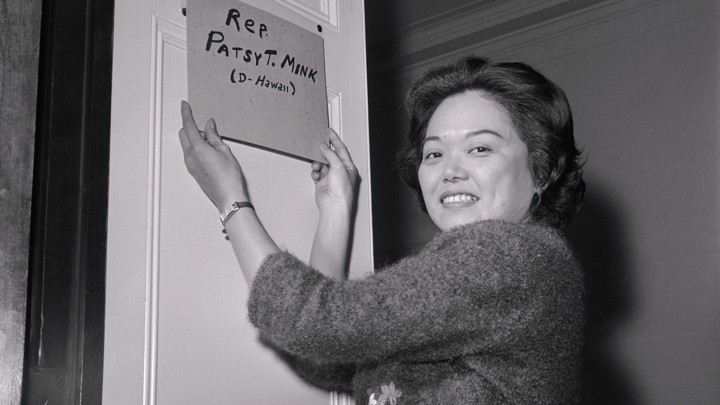 Rep.
Patsy T. Mink
(D-Hawaii)